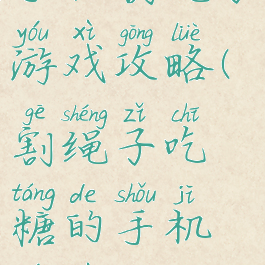 yóu xì gōng lüè
游戏攻略(
gē shéng zǐ chī
割绳子吃
táng de shǒu jī
糖的手机